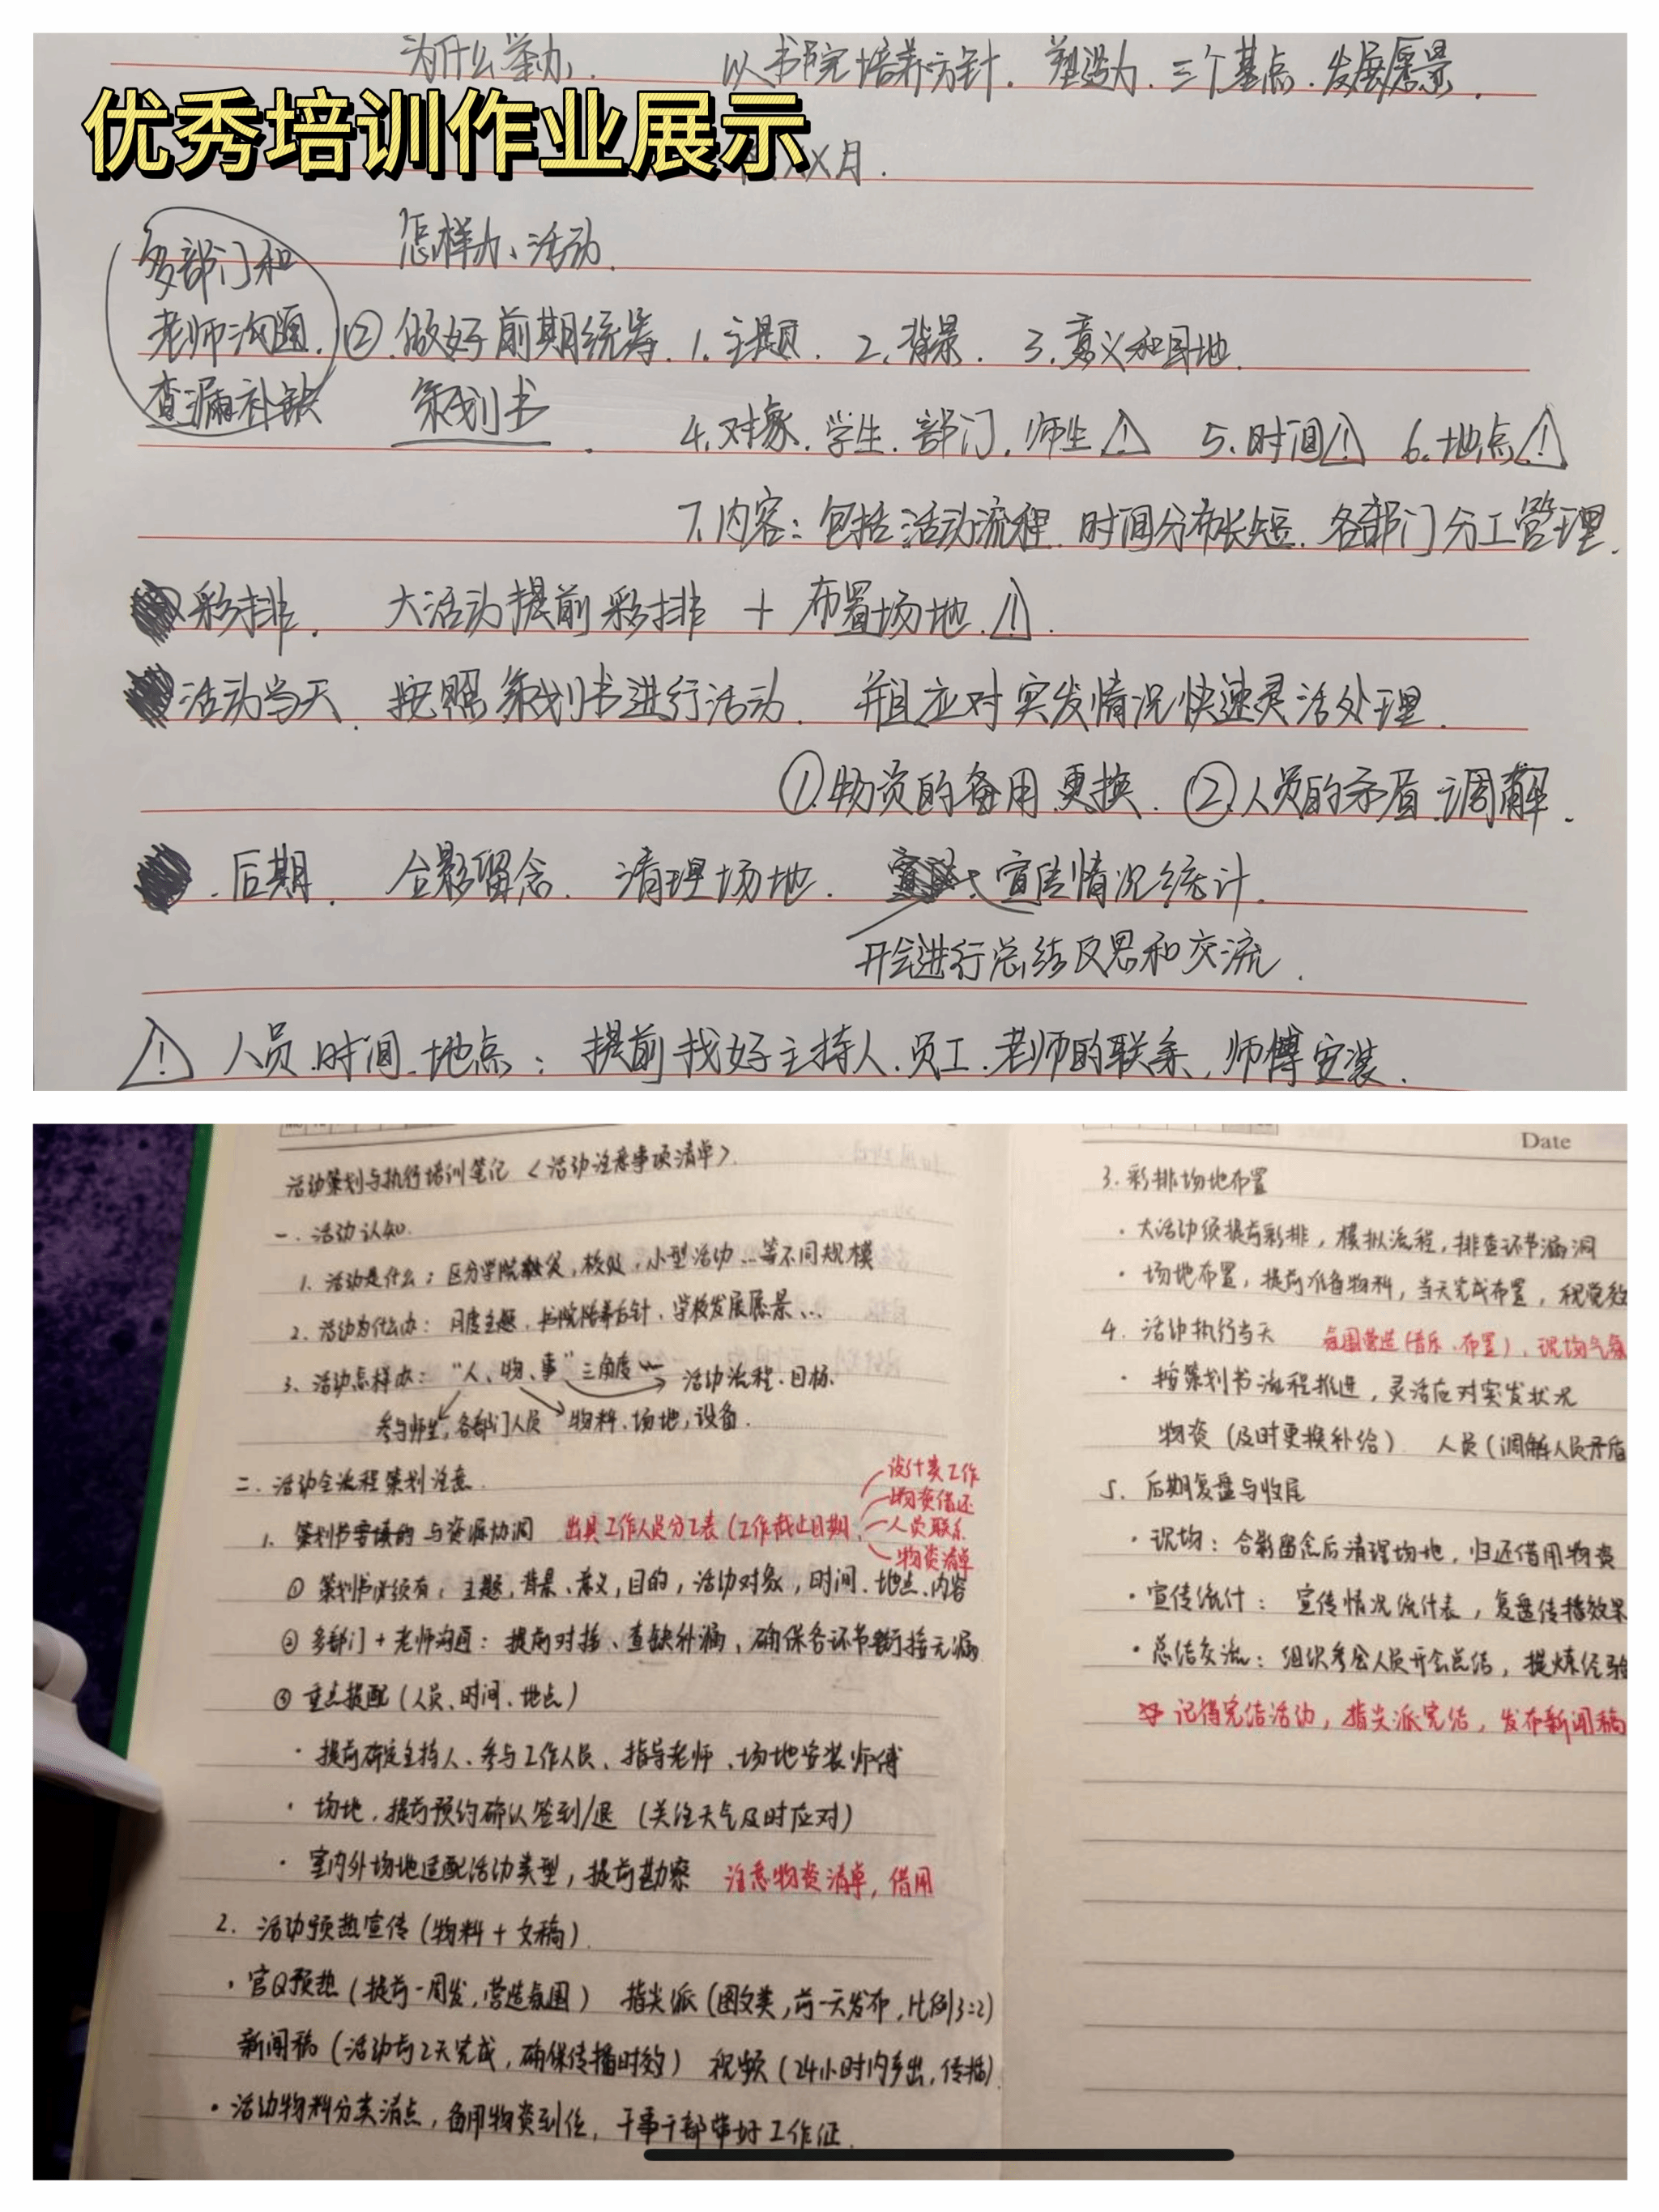 为什么举办. 以书院培养方针. 塑造为. 三个基点. 发展愿景.
优秀培训作业展示
XX月.
怎样办、活动.
多部门和
老师沟通.
查漏补缺
② 做好前期统筹. 1. 主题. 2. 背景. 3. 意义和目地.
策划书. 4. 对象. 学生. 部门. 师生 ⚠ 5. 时间 ⚠ 6. 地点 ⚠
7. 内容: 包括活动流程. 时间分布长短. 各部门分工管理.
彩排. 大活动提前彩排 + 布置场地. ⚠.
活动当天. 按照策划书进行活动. 并且应对突发情况快速灵活处理.
① 物资的备用 更换. ② 人员的矛盾 调解.
. 后期. 合影留念. 清理场地. 宣传情况统计.
开会进行总结反思和交流.
⚠ 人员. 时间. 地点: 提前找好主持人. 员工. 老师的联系, 师傅安装.
活动策划与执行培训笔记 <活动注意事项清单>.
一. 活动认知.
1. 活动是什么: 区分学院级, 校级, 小型活动...等不同规模
2. 活动为什么办: 月度主题, 书院培养方针、学校发展愿景...
3. 活动怎样办: “人、物、事”三角度 活动流程. 目标.
参与师生, 各部门人员 物料. 场地, 设备.
二. 活动全流程策划注意.
设计类工作
物资借还
人员联系
物资清单
1. 与资源协调 出具工作人员分工表 (工作截止日期
① 策划书必须有: 主题, 背景、意义, 目的, 活动对象, 时间. 地点. 内容
② 多部门 + 老师沟通: 提前对接、查缺补漏, 确保各环节衔接无漏
③ 重点提醒 (人员、时间、地点)
· 提前确定主持人、参与工作人员、指导老师、场地安装师傅
· 场地, 提前预约确认签到/退 (关注天气及时应对)
· 室内外场地适配活动类型, 提前勘察 注意物资清单, 借用
2. 活动预热宣传 (物料 + 文稿).
· 官Q预热 (提前一周发, 营造氛围) 指尖派 (图文类, 前一天发布, 比例3:2)
新闻稿 (活动后2天完成, 确保传播时效) 视频 (24小时内产出, 传播)
· 活动物料分类清点, 备用物资到位, 干事干部带好工作证.
Date
3. 彩排场地布置
· 大活动须提前彩排, 模拟流程, 排查环节漏洞
· 场地布置, 提前准备物料, 当天完成布置, 视觉效
4. 活动执行当天 氛围营造 (音乐. 布置), 现场气氛
· 按策划书流程推进, 灵活应对突发状况
物资 (及时更换补给) 人员 (调解人员矛盾
5. 后期复盘与收尾
· 现场: 合影留念后清理场地, 归还借用物资
· 宣传统计: 宣传情况统计表, 复盘传播效果
· 总结交流: 组织参会人员开会总结, 提炼经验
记得完结活动, 指尖派完结, 发布新闻稿